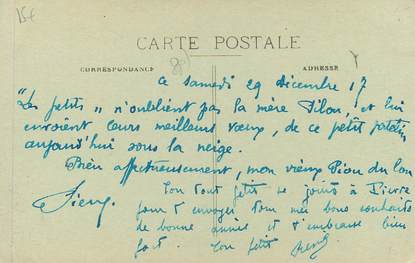 15€
CARTE POSTALE
CORRESPONDANCE
ADRESSE
ce samedi 29 décembre 17
"Les petits" n'oublient pas la mère Pilou, et lui
envoient leurs meilleurs vœux, de ce petit
aujourd'hui sous la neige.
Bien affectueusement, mon vieux Piou du
Ton tout petit se joint à Pierre
pour t'envoyer tous mes bons souhaits
de bonne année et t'embrasse bien
fort. Ton petit René